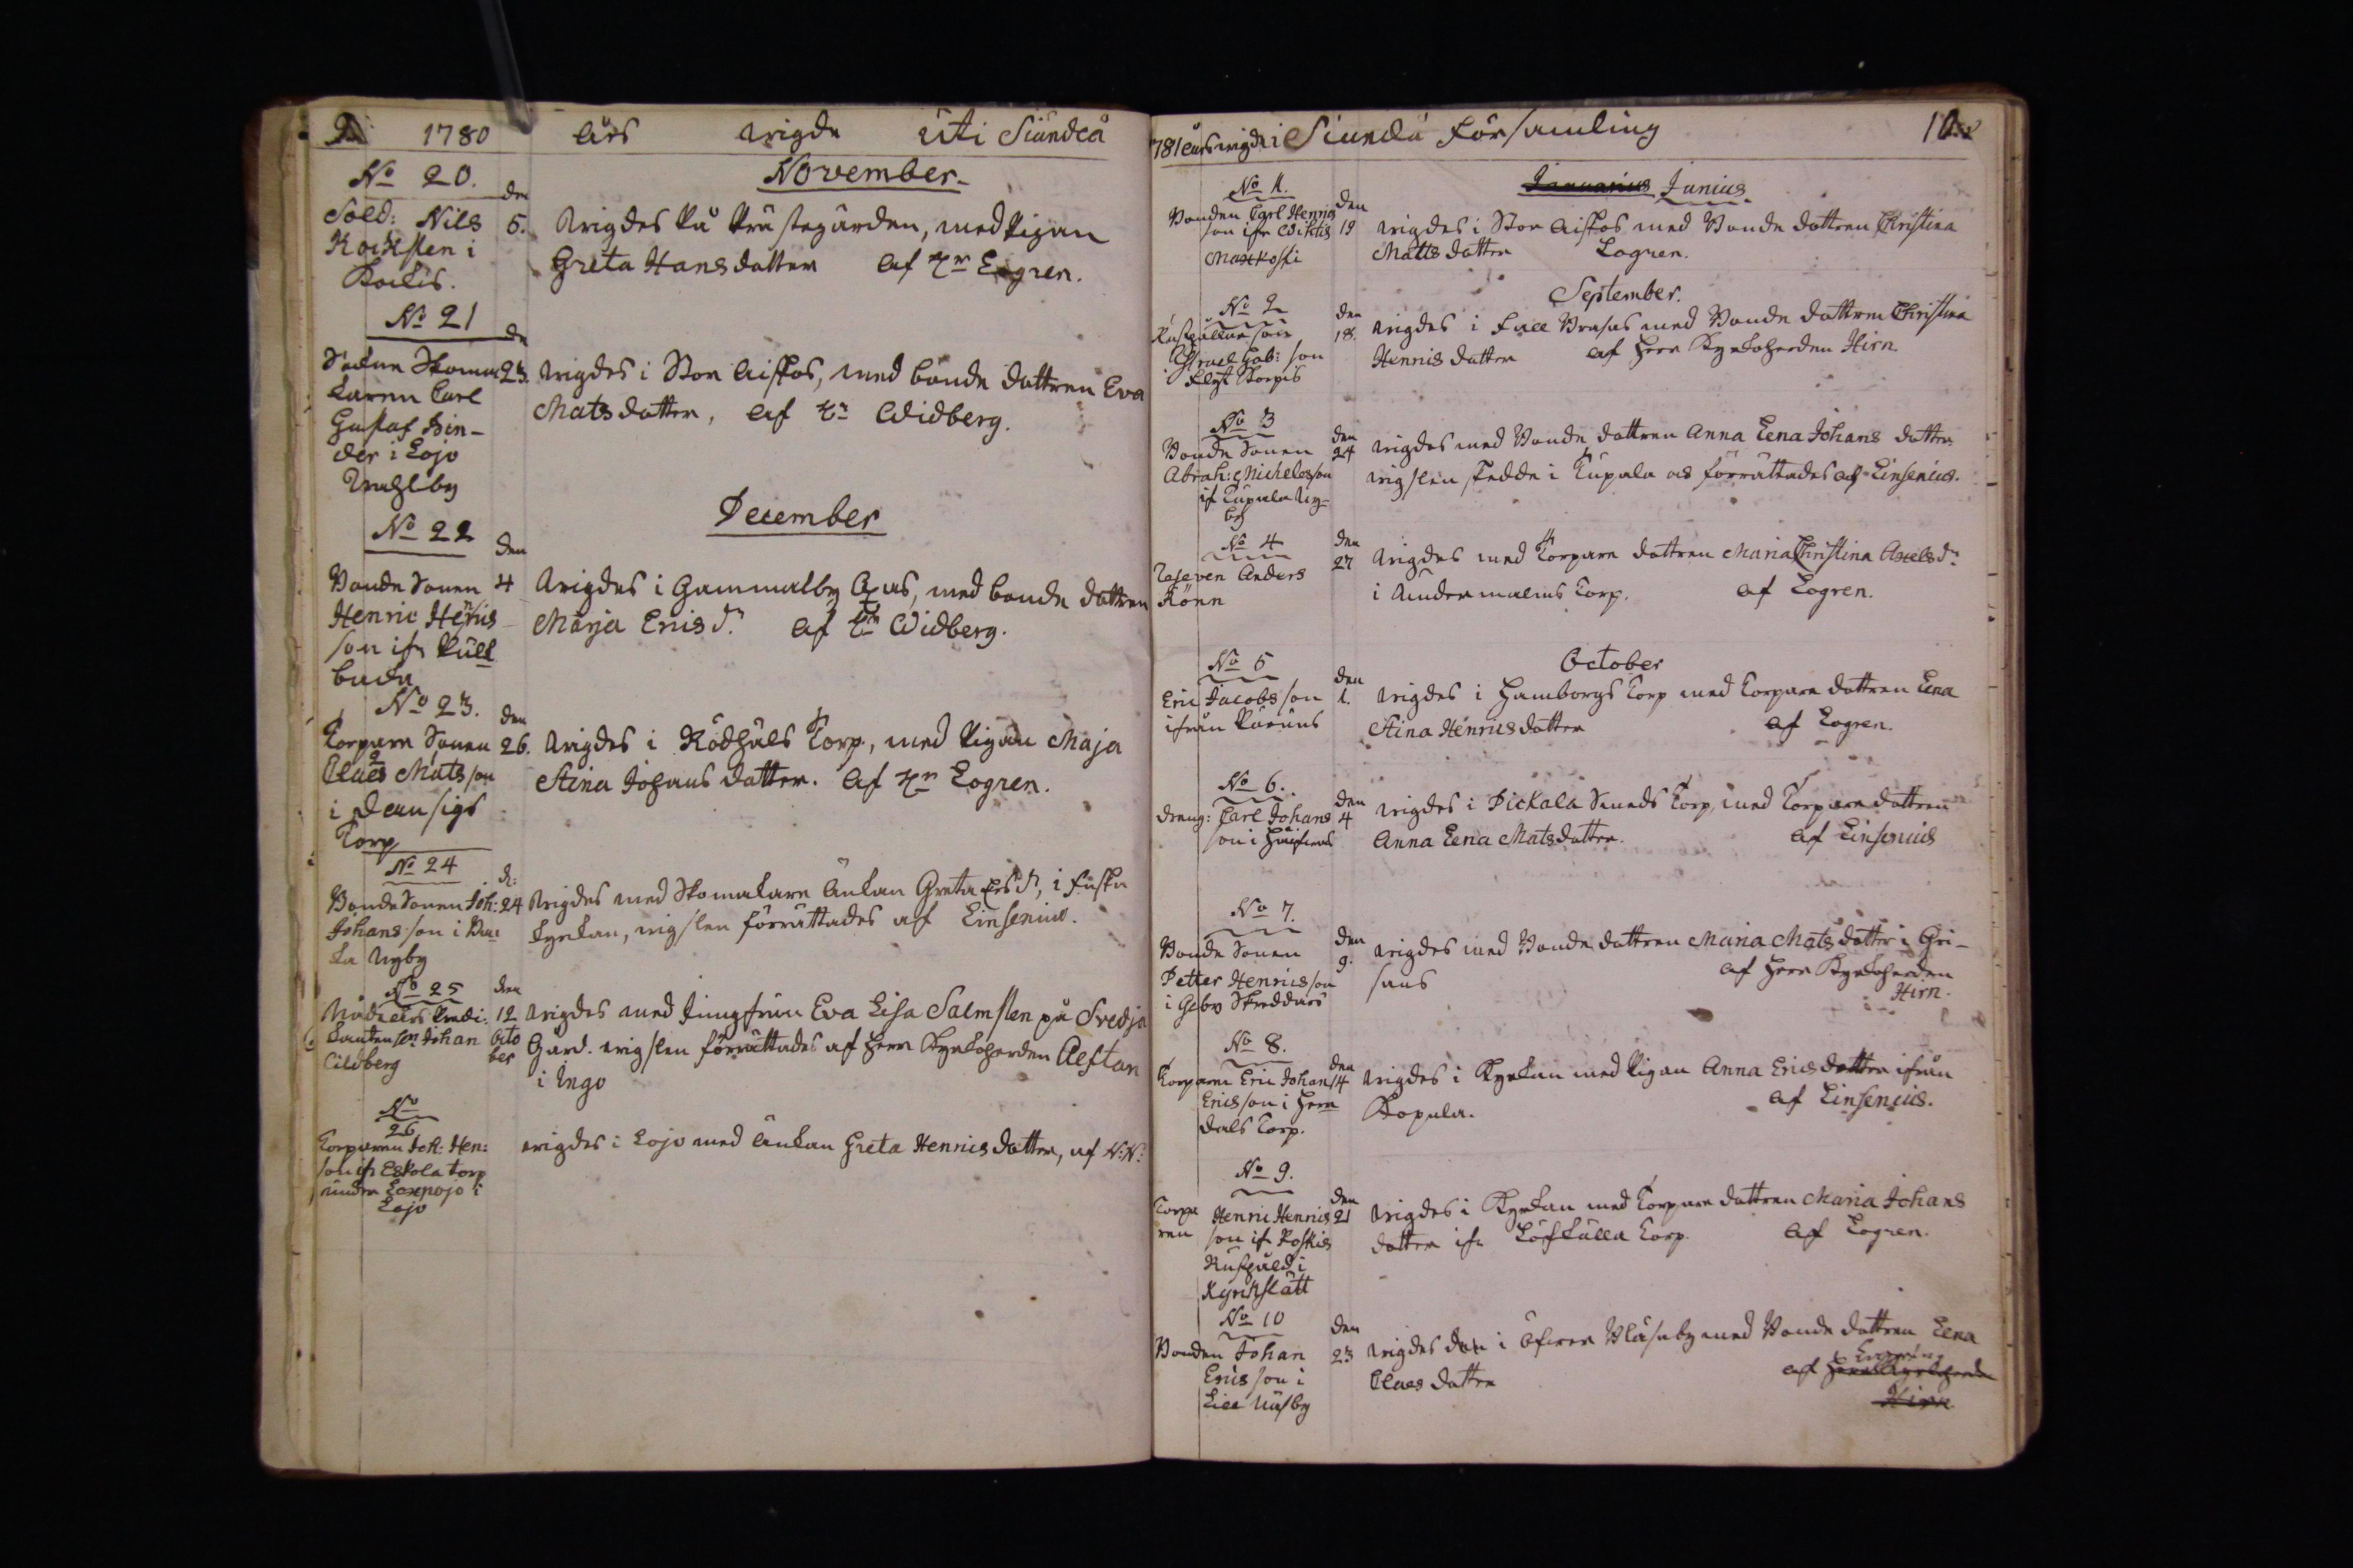 1780 års wigde uti Siundeå
November.
No 20.
Sold: Nils
Kocksten i
Kockis.
den
5. Wigdes På Prästegården, med Pigan
Greta Hans dotter af Hr Logren.
No 21
Sockne Skoma
karen Carl
Gustaf Bin-
der i Lojo
den
23. wigdes i Stor Aiskos, med bonde dottren Eva
Mats dotter, af Hr Widberg.
December
No 22
Bonde Sonen
Henric Henris
son ifr Pull
backa
den
4 Wigdes i Gammalby, med bonde dottren
Marja Erics dr. af Hr Widberg.
No 23.
Torpare Sonen
Claes Mats son
i
Torp
den
26. Wigdes i Rödhals Torp, med Pigan Maja
Stina Johans dotter. af Hr Logren.
No 24
Bonde Sonen Joh:
Johans son i
Nyby
d:
24 Wigdes med Skomakare Änkan Greta Ersdr, i
kyrkan, wigslen förrättades af Linsenius.
No 25
Predi:
kanten Hr Johan
Cildberg
den
12
Octo
ber
wigdes med Jungfrun Eva Lisa Salmsten på Svedja
Gård. wigslen förrättades af Herr Kyrkoherden Alftan
i Ingo
No
26
Torparen Joh: Hen:
son ifr Eskola torp
under i
Lojo
wigdes i Lojo med Änkan Greta Henrics dotter, af N:N:
1781 års wigde i Siundeå församling
10
Januarius Junius.
No 1.
Bonden Carl Henrics
son ifr Wiktis
Maxkoski
den
19 wigdes i Stor Aiskos med Bonde dottren Christina
Matts dotter Logren.
September.
No 2
Rusthållar son
Israel Gab: son
den
18. wigdes i Lill med Bonde dottren Christina
Henrics dotter af Herr Kyrkoherden Hirn
No 3
Bonde Sonen
Abrah: Michelsson
if Tupala Ny-
by
den
24 wigdes med Bonde dottren Anna Lena Johans dotter
wigslen skedde i Tupala as förrättades af Linsenius.
No 4
Anders
Rönn
den
27 wigdes med Torpare dottren Maria Christina Axelsdr
i Torp. af Logren.
October
No 5
Eric Jacobs son
ifrån
den
1. wigdes i Hamborgs Torp med Torpare dottren Lena
Stina Henrics dotter af Logren.
No 6.
dreng: Carl Johans
son i
den
4 wigdes i Pickala Smeds Torp, med Torpare dottren
Anna Lena Mats dotter. af Linsenius
No 7.
Bonde Sonen
Petter Henrics son
i Skreddars
den
9. wigdes med Bonde dottren Maria Mats dotter i Gri-
sans af Herr Kyrkoherden
Hirn.
No 8.
Torparen Eric Johan
Erics son i Herr
dals Torp.
den
14 wigdes i Kyrkan med Pigan Anna Erics dotter ifrån
Kopula. af Linsenius.
No 9.
Torpa
ren Henric Henrics
son if Koskis
Rusthåld i
Kyrkslätt
den
21 wigdes i Kyrkan med Torpare dottren Maria Johans
dotter ifr Löfkulla Torp. af Logren.
No 10
Bonden Johan
Erics son i
Lill Näsby
den
23 wigdes i Öfver med Bonde dottren Lena
Claes dotter af Herr Kyrkoherde
Hirn